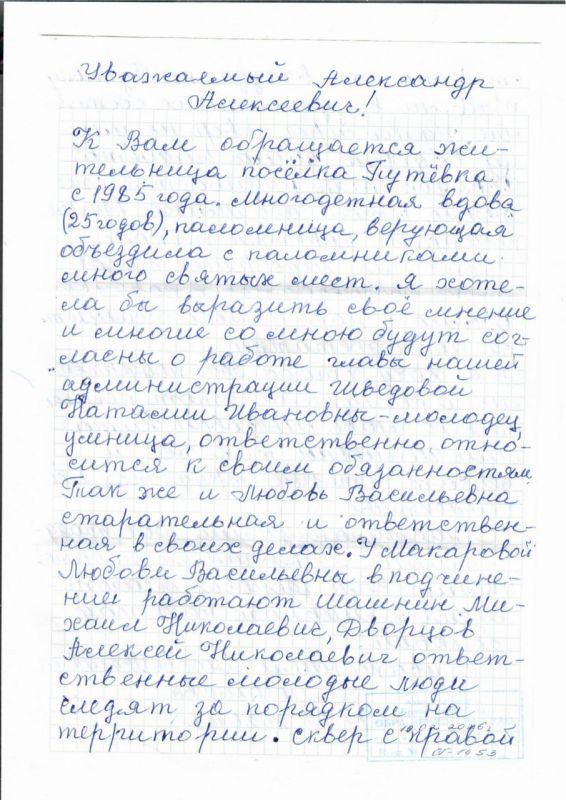 Уважаемый Александр
Алексеевич!
К Вам обращается жи-
тельница посёлка Путёвка
с 1985 года. Многодетная вдова
(25 годов), паломница, верующая
объездила с паломниками
много святых мест. Я хоте-
ла бы выразить своё мнение
и многие со мною будут сог-
ласны о работе главы нашей
администрации Шведовой
Наталии Ивановны - молодец,
умница, ответственно, отно-
сится к своим обязанностям
Так же и Любовь Васильевна
старательная и ответствен-
ная в своих делах. У Макаровой
Любови Васильевны в подчине-
нии работают Шашнин Ми-
хаил Николаевич, Дворцов
Алексей Николаевич ответ-
ственные молодые люди
следят за порядком на
территории. Сквер с травой